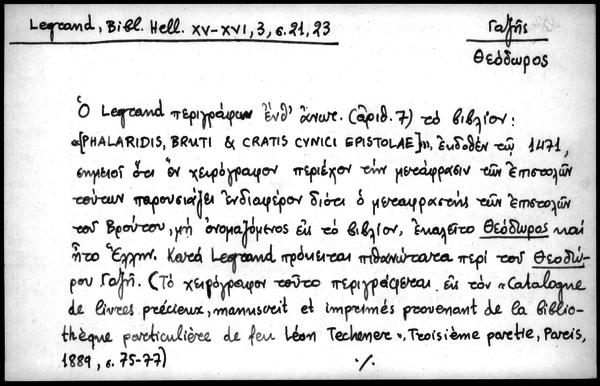 Legrand, Bibl. Hell. XV-XVI, 3, σ. 21, 23
Γαζῆς
Θεόδωρος
Ὁ Legrand περιγράφων ἔνθ' ἄνωτ. (ἀριθ. 7) τὸ βιβλίον:
«[PHALARIDIS, BRUTI & CRATIS CYNICI EPISTOLAE]», ἐκδοθὲν τῷ 1471,
σημειοῖ ὅτι ἓν χειρόγραφον περιέχον τὴν μετάφρασιν τῶν Ἐπιστολῶν
τούτων παρουσιάζει ἐνδιαφέρον διότι ὁ μεταφραστὴς τῶν Ἐπιστολῶν
τοῦ Βρούτου, μὴ ὀνομαζόμενος εἰς τὸ βιβλίον, ἐκαλεῖτο Θεόδωρος καὶ
ἦτο Ἕλλην. Κατὰ Legrand πρόκειται πιθανώτατα περὶ τοῦ Θεοδώ-
ρου Γαζῆ. (Τὸ χειρόγραφον τοῦτο περιγράφεται εἰς τὸν «Catalogue
de livres précieux, manuscrit et imprimés provenant de la biblio-
thèque particulière de feu Léon Techener», Troisième partie, Paris,
1889, σ. 75-77)
·/.